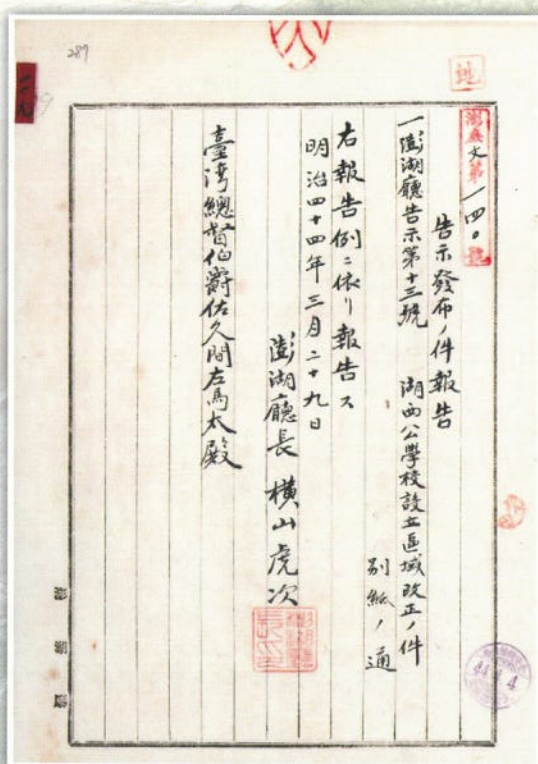 289
地
澎庶文第一四〇號
告示發布ノ件報告
一澎湖廳告示第十三號 湖西公學校設立區域改正ノ件
別紙ノ通
右報告例ニ依リ報告ス
明治四十四年三月二十九日
澎湖廳長 橫山虎次
臺灣總督伯爵佐久間左馬太殿
44.4.4